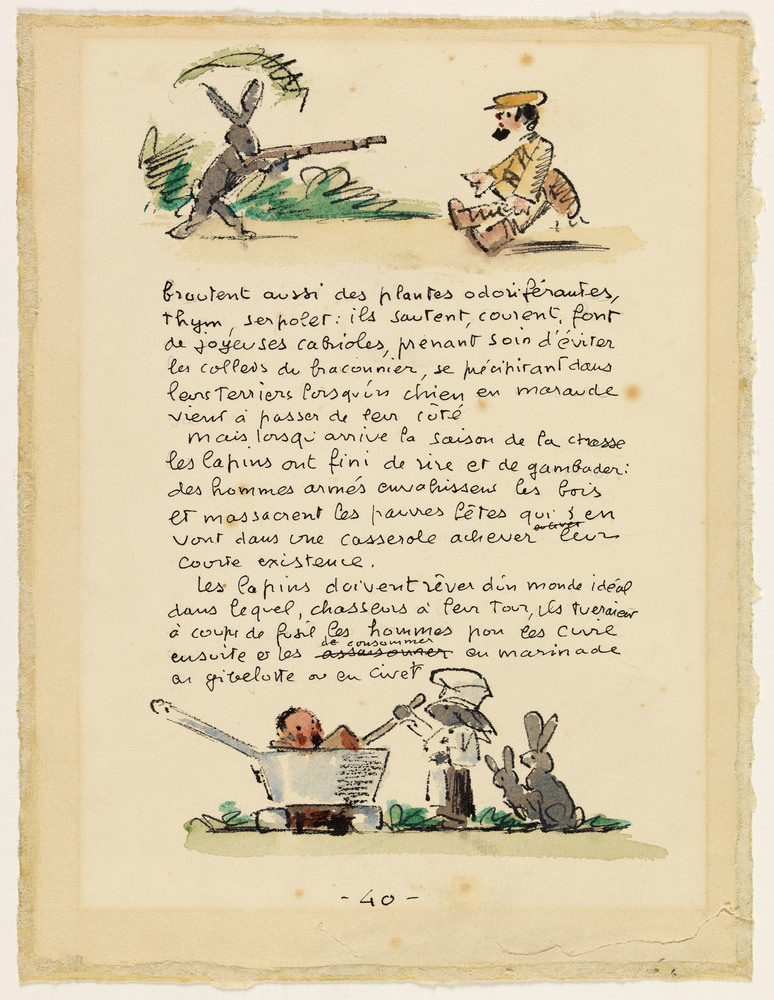 broutent aussi des plantes odoriférantes,
thym, serpolet : ils sautent, courent, font
de joyeuses cabrioles, prenant soin d'éviter
les collets du braconnier, se précipitant dans
leurs terriers lorsqu'un chien en maraude
vient à passer de leur côté
mais lorsqu'arrive la saison de la chasse
les lapins ont fini de rire et de gambader :
des hommes armés envahissent les bois
et massacrent les pauvres bêtes qui s'en
vont dans une casserole achever leur
courte existence.
Les lapins doivent rêver d'un monde idéal
dans lequel, chasseurs à leur tour, ils tueraient
à coups de fusil les hommes pour les cuire
de consommer
ensuite et les assaisonner en marinade
en gibelotte ou en civet
- 40 -